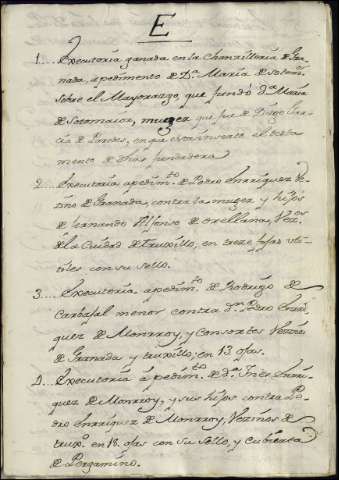 E
1... Executoria ganada en la Chanzilleria de Gra-
nada a pedimento de Dª. Maria de Sotomr.
sobre el Mayorazgo, que fundó Dª. Maria
de Sotomaior, muger que fue de Diego Gra-
cia de Paredes, en que esta inserto el testa
mento de dha fundadora
2... Executoria a pedimto. de Pedro Enrriquez Ve-
zino de Granada, contra la muger y hijos
de Hernando Alfonso de Orellana, Vezos.
de la Ciudad de Truxillo, en treze fojas uti-
les con su sello.
3... Executoria a pedimto. de Rodrigo de
Carbajal menor contra Dn. Pedro Enrri-
quez de Monrroy, y Consortes Vezinos
de Granada y truxillo, en 13 ofas.
4... Executoria á pedimto. de dª. Ines Enrri-
quez de Monrroy, y sus hijos contra Pe-
dro Enrriquez de Monrroy, Vezinos de
trux.º en 18. ofas con su sello, y Cubierta
de Pergamino.